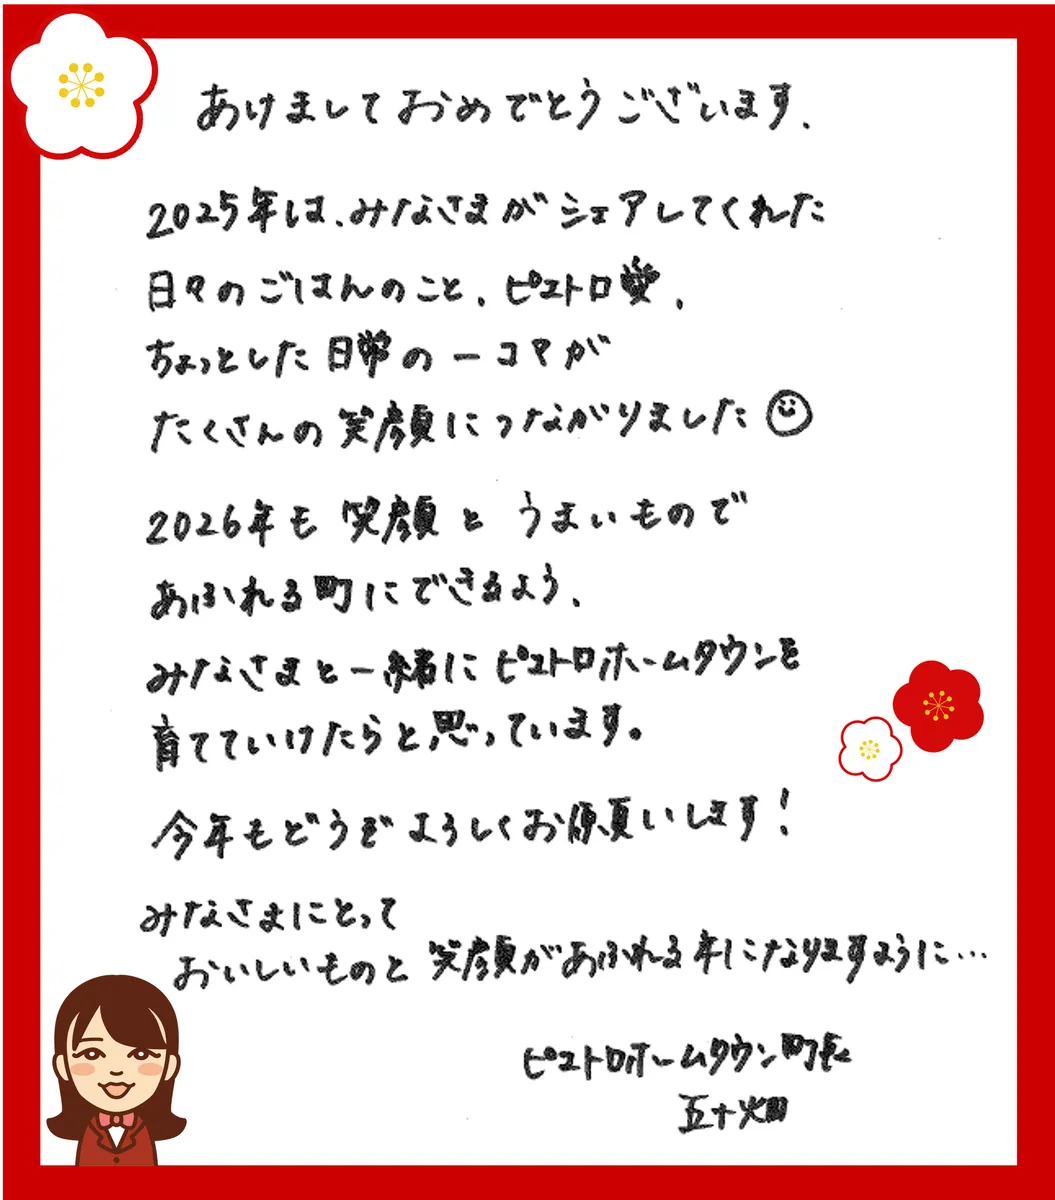 あけましておめでとうございます、
2025年は、みなさまがシェアしてくれた
日々のごはんのこと、ピエトロ愛、
ちょっとした日常の一コマが
たくさんの笑顔につながりました
2026年も笑顔とうまいもので
あふれる町にできるよう、
みなさまと一緒にピエトロホームタウンを
育てていけたらと思っています。
今年もどうぞよろしくお願いします！
みなさまにとって
おいしいものと笑顔があふれる年になりますように…
ピエトロホームタウン町長
五十畑